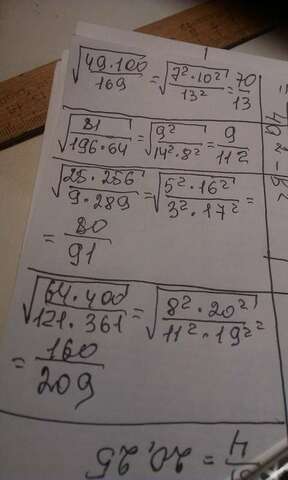 √(49·100/169) = √(7²·10²/13²) = 70/13
√(81/(196·64)) = √(9²/(14²·8²)) = 9/112
√(25·256/(9·289)) = √(5²·16²/(3²·17²)) =
= 80/91
√(64·400/(121·361)) = √(8²·20²/(11²·19²²))
= 160/209
= 20,25